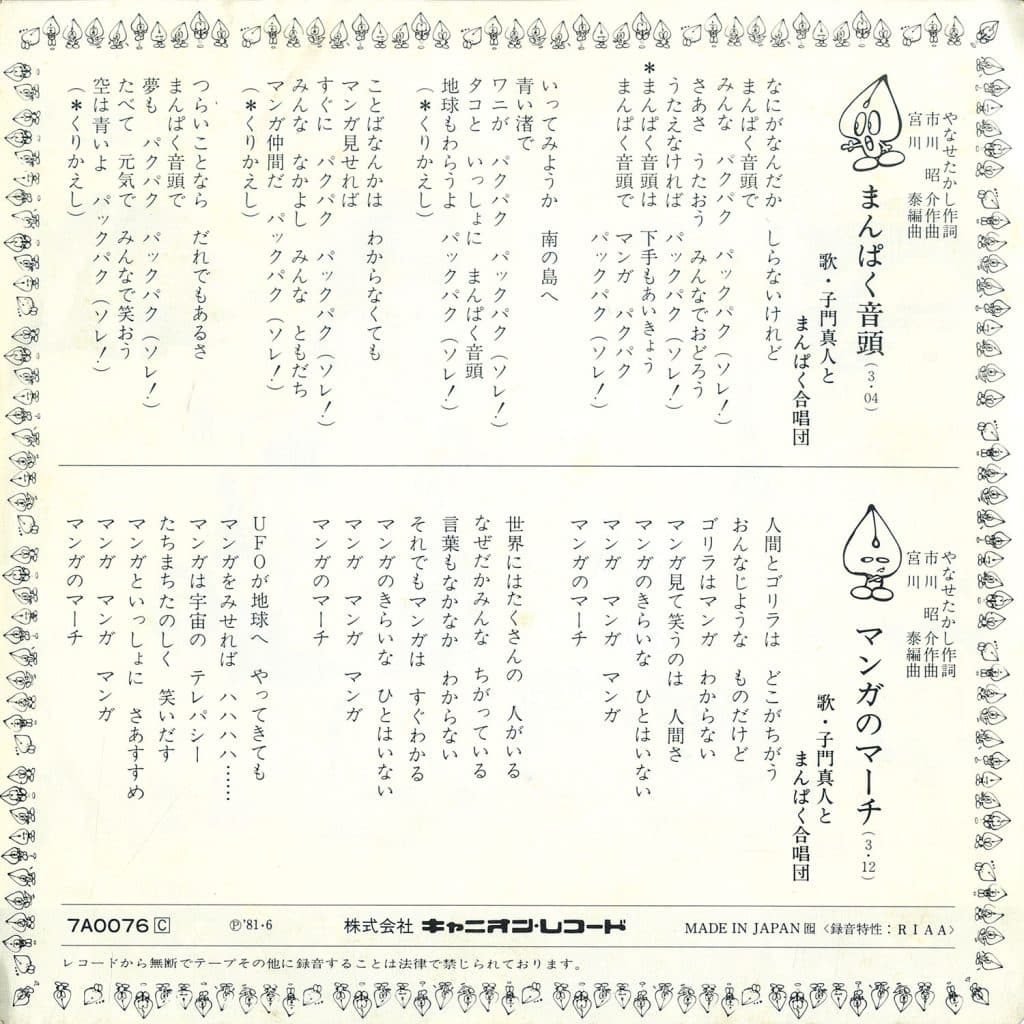 やなせたかし作詞
市川　昭　介作曲
宮　川　　泰編曲
まんぱく音頭(3・04)
歌・子門真人と
まんぱく合唱団
なにがなんだか　しらないけれど
まんぱく音頭で
みんな　パクパク　パックパク（ソレ！）
さあさ　うたおう　みんなでおどろう
うたえなければ　パックパク（ソレ！）
＊まんぱく音頭は　下手もあいきょう
まんぱく音頭で　マンガ　パクパク
パックパク（ソレ！）
いってみようか　南の島へ
青い渚で
ワニが　パクパク　パックパク（ソレ！）
タコと　いっしょに　まんぱく音頭
地球もわらうよ　パックパク（ソレ！）
（＊くりかえし）
ことばなんかは　わからなくても
マンガ見せれば
すぐに　パクパク　パックパク（ソレ！）
みんな　なかよし　みんな　ともだち
マンガ仲間だ　パックパク（ソレ！）
（＊くりかえし）
つらいことなら　だれでもあるさ
まんぱく音頭で
夢も　パクパク　パックパク（ソレ！）
たべて　元気で　みんなで笑おう
空は青いよ　パックパク（ソレ！）
（＊くりかえし）
やなせたかし作詞
市川　昭　介作曲
宮　川　　泰編曲
マンガのマーチ(3・12)
歌・子門真人と
まんぱく合唱団
人間とゴリラは　どこがちがう
おんなじような　ものだけど
ゴリラはマンガ　わからない
マンガ見て笑うのは　人間さ
マンガのきらいな　ひとはいない
マンガ　マンガ　マンガ
マンガのマーチ
世界にはたくさんの　人がいる
なぜだかみんな　ちがっている
言葉もなかなか　わからない
それでもマンガは　すぐわかる
マンガのきらいな　ひとはいない
マンガ　マンガ　マンガ
マンガのマーチ
UFOが地球へ　やってきても
マンガをみせれば　ハハハハ……
マンガは宇宙の　テレパシー
たちまちたのしく　笑いだす
マンガといっしょに　さあすすめ
マンガ　マンガ　マンガ
マンガのマーチ
7A0076 C　℗'81・6　株式会社 キャニオン・レコード　MADE IN JAPAN　〈録音特性：RIAA〉
レコードから無断でテープその他に録音することは法律で禁じられております。